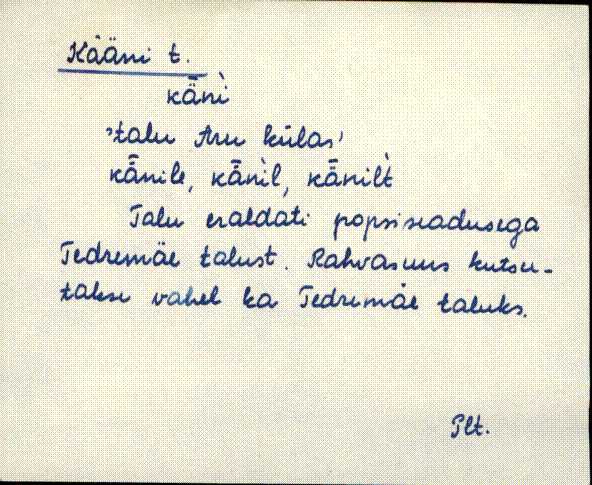 Kääni t.
kǟnì
'talu Aru külas'
kǟnile, kǟnìl, kǟnìlt
Talu eraldati popsiseadusega
Tedremäe talust. Rahvasuus kutsu-
takse vahel ka Tedremäe taluks.
Plt.